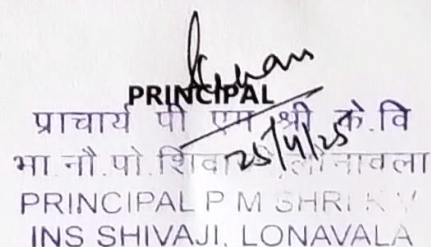 PRINCIPAL
प्राचार्य पी एम श्री के.वि
भा.नौ.पो.शिवाजी,लोनावला
25/4/25
PRINCIPAL P M SHRI K V
INS SHIVAJI, LONAVALA